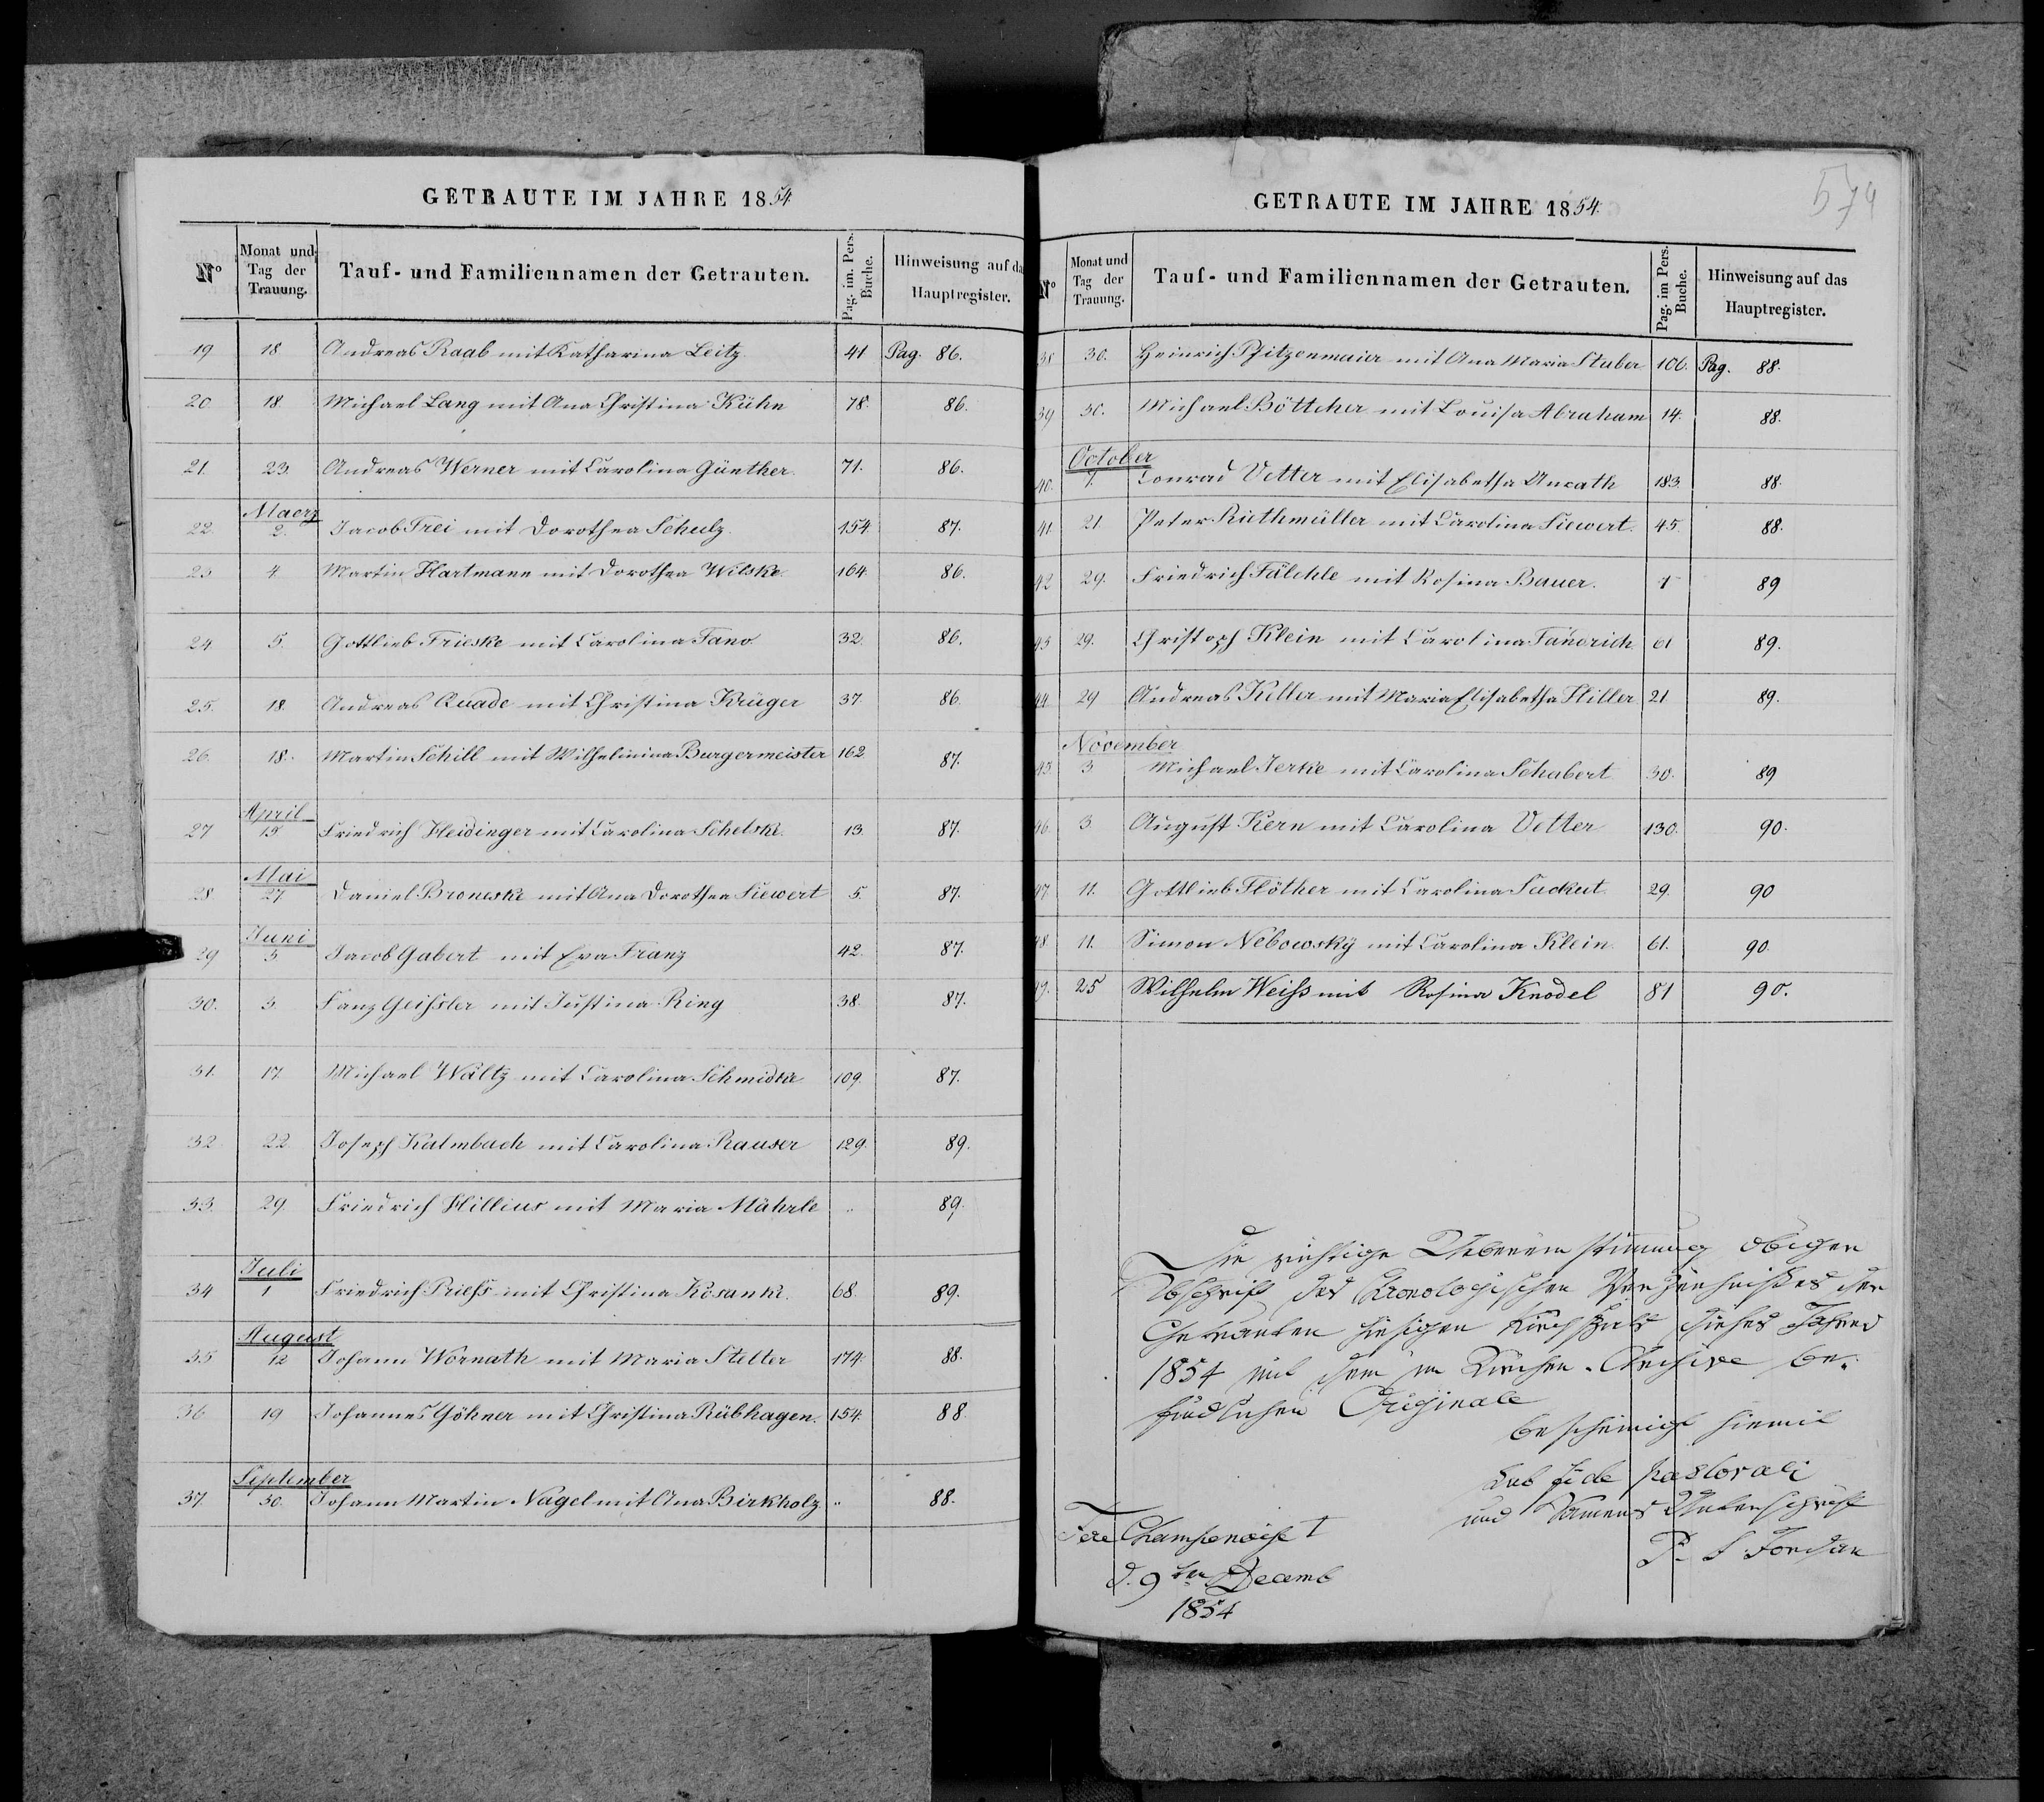 GETRAUTE IM JAHRE 1854
Nº | Monat und Tag der Trauung. | Tauf- und Familiennamen der Getrauten. | Pag. im. Pers. Buche. | Hinweisung auf da Hauptregister.
19 | 18 | Andreas Raab mit Katharina Leitz | 41 | Pag. 86.
20. | 18. | Michael Lang mit Ana Christina Kühn | 78. | 86.
21. | 23. | Andreas Werner mit Carolina Günther. | 71. | 86.
Maerz
22. | 2. | Jacob Frei mit Dorothea Schulz. | 154. | 87.
23 | 4. | Martin Hartmann mit Dorothea Wilske. | 164. | 86.
24. | 5. | Gottlieb Frieske mit Carolina Fano | 32. | 86.
25. | 18. | Andreas Quade mit Christina Krüger | 37. | 86.
26. | 18. | Martin Schill mit Wilhelmina Burgermeister | 162 | 87.
April
27 | 15 | Friedrich Heidinger mit Carolina Schelske. | 13. | 87.
Mai
28 | 27. | Daniel Broneske mit Ana Dorothea Siewert | 5. | 87.
Juni
29 | 3. | Jacob Gabert mit Eva Franz | 42. | 87.
30. | 3. | Fanz Geissler mit Justina Ring | 38. | 87.
31. | 17. | Michael Wältz mit Carolina Schmidtke | 109. | 87.
32 | 22 | Joseph Kalmbach mit Carolina Rauser | 129. | 89.
33. | 29. | Friedrich Hillius mit Maria Mährle | .. | 89.
Juli
34 | 1 | Friedrich Priess mit Christina Kosanke. | 68. | 89.
August
35 | 12 | Johann Wornath mit Maria Stelter | 174. | 88.
36 | 19 | Johannes Göhner mit Christina Rübhagen. | 154. | 88.
September
37. | 30. | Johann Martin Nagel mit Ana Birkholz | .. | 88.
GETRAUTE IM JAHRE 1854.
574
Nº | Monat und Tag der Trauung. | Tauf- und Familiennamen der Getrauten. | Pag. im Pers. Buche. | Hinweisung auf das Hauptregister.
38 | 30. | Heinrich Pfitzenmaier mit Ana Maria Stuber | 106. | Pag. 88.
39 | 30. | Michael Böttcher mit Louisa Abraham | 14. | 88.
October
40. | 7. | Conrad Vetter mit Elisabetha Unrath | 183. | 88.
41. | 21 | Peter Riethmüller mit Carolina Siewert. | 45. | 88.
42 | 29. | Friedrich Fälchle mit Rosina Bauer. | 1 | 89
43 | 29. | Christoph Klein mit Carolina Fändrich. | 61 | 89.
44. | 29 | Andreas Keller mit Maria Elisabetha Hiller | 21. | 89.
November
45. | 3. | Michael Jerke mit Carolina Schabert | 30. | 89
46. | 3. | August Kern mit Carolina Vetter | 130. | 90.
47. | 11. | Gottlieb Flöther mit Carolina Sackut. | 29. | 90
48. | 11. | Simon Nebowsky mit Carolina Klein. | 61. | 90
49. | 25 | Wilhelm Weiss mit Rosina Knodel | 81 | 90.
Die richtige Uebereinstimmung obiger
Abschrift des Chronologischen Verzeichnisses der
Getrauten hiesigen Kirchspiels dieses Jahres
1854 mit dem im Kirchen-Archive be-
findlichen Originale
bescheinigt hiemit
sub fide pastorali
und Namens Unterschrift
P. F. Jordan
Fere Champenoise I
d. 9ten Decemb
1854